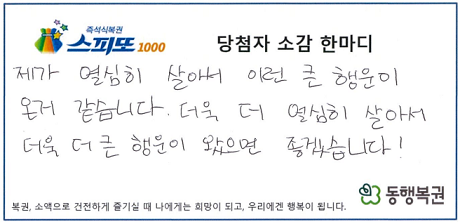 즉석식복권
스피또 1000
당첨자 소감 한마디
제가 열심히 살아서 이런 큰 행운이
온거 같습니다. 더욱 더 열심히 살아서
더욱 더 큰 행운이 왔으면 좋겠습니다!
복권, 소액으로 건전하게 즐기실 때 나에게는 희망이 되고, 우리에겐 행복이 됩니다.
동행복권